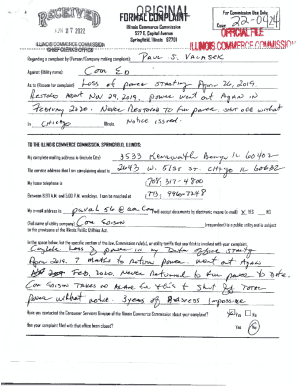 ORIGINAL
RECEIVED
JUN 27 2022
ILLINOIS COMMERCE COMMISSION
CHIEF CLERK'S OFFICE
FORMAL COMPLAINT
Illinois Commerce Commission
527 E. Capitol Avenue
Springfield, Illinois 62701
For Commission Use Only:
Case: 22-0424
OFFICIAL FILE
ILLINOIS COMMERCE COMMISSION
Regarding a complaint by (Person/Company making complaint): Paul S. Valasek
Against (Utility name): Com Ed
As to (Reason for complaint) Loss of power starting April 26, 2019.
Restored Nov 29, 2019. power went out Again in
February 2020. Never Restored to full power. Shut off without
in Chicago Illinois Notice issued.
TO THE ILLINOIS COMMERCE COMMISSION, SPRINGFIELD, ILLINOIS:
My complete mailing address is (include City) 3533 Kenilworth Berwyn IL 60402
The service address that I am complaining about is 2643 W. 51st St. Chicago IL 60632
My home telephone is
Between 8:30 A.M. and 5:00 P.M. weekdays, I can be reached at
My e-mail address is
I will accept documents by electronic means (e-mail) YES NO
(Full name of utility company) Com Edison (respondent) is a public utility and is subject
to the provisions of the Illinois Public Utilities Act.
In the space below, list the specific section of the law, Commission rule(s), or utility tariffs that you think is involved with your complaint.
Complete loss of power in my Dental office starting
April 2019. 7 months to Return power. Went out Again
Feb 2020, Never Returned to full power to Date.
Com Edison
power without notice. 3 years of Business Impossible
Have you contacted the Consumer Services Division of the Illinois Commerce Commission about your complaint? Yes No
Has your complaint filed with that office been closed? Yes No